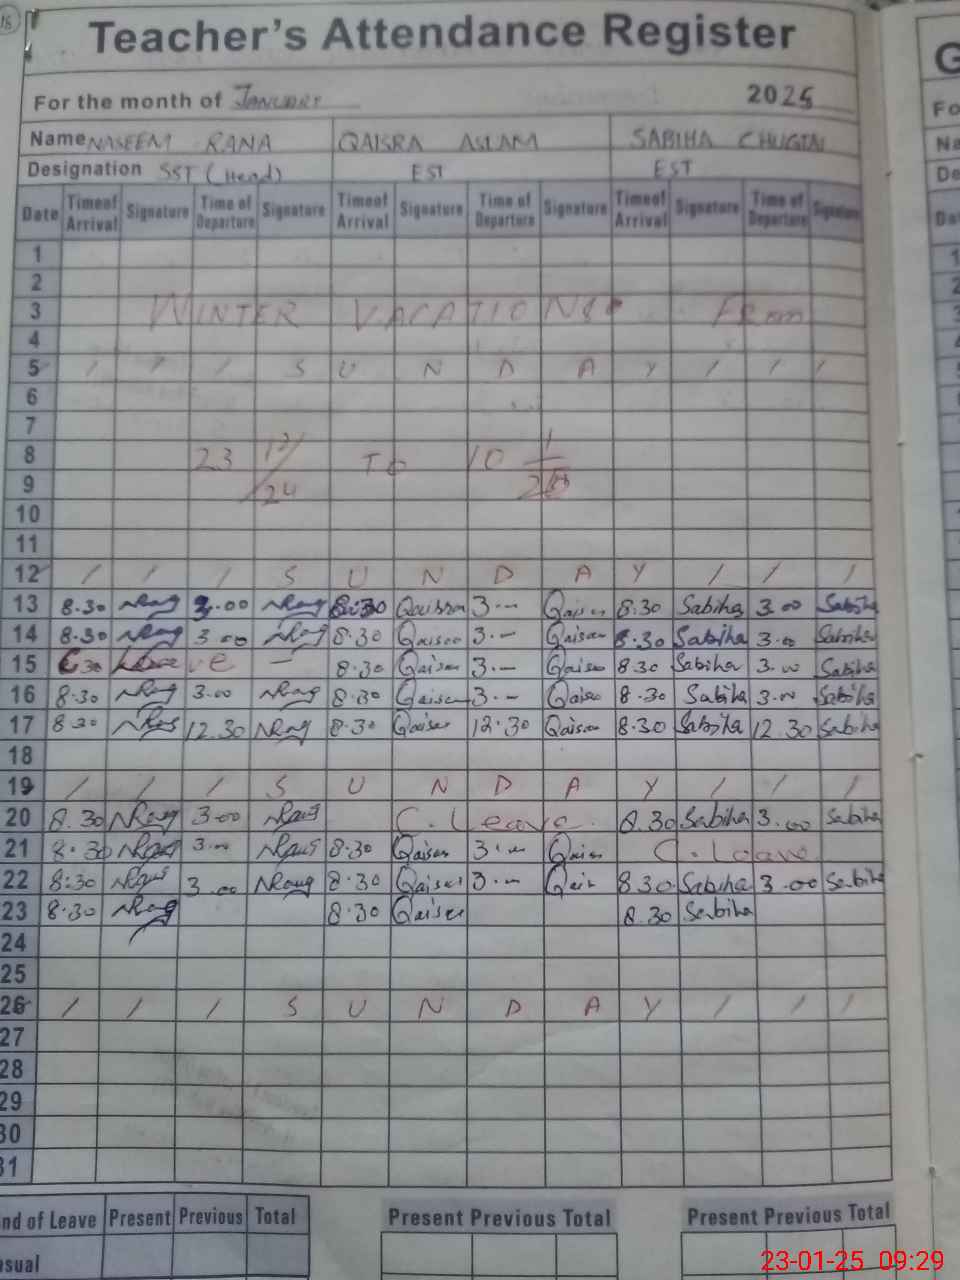 18
Teacher's Attendance Register
For the month of JANUARY 2025
Name NASEEM RANA QAISRA ASLAM SABIHA CHUGTAI
Designation SST (Head) EST EST
Date Timeof Arrival Signature Time of Departure Signature Timeof Arrival Signature Time of Departure Signature Timeof Arrival Signature Time of Departure Signature
1
2
3 WINTER VACATIONS From
4
5 / / / S U N D A Y / / /
6
7
8 23 12/24 TO 10 1/25
9
10
11
12 / / / S U N D A Y / / /
13 8.30 NRang 3.00 NRang 8:30 Qaisra 3.— Qaisra 8.30 Sabiha 3.00 Sabiha
14 8.30 NRang 3.00 NRang 8.30 Qaisra 3.— Qaisra 8.30 Sabiha 3.00 Sabiha
15 Leave — 8.30 Qaisra 3.— Qaisra 8.30 Sabiha 3.00 Sabiha
16 8.30 NRang 3.00 NRang 8.30 Qaisra 3.— Qaisra 8.30 Sabiha 3.00 Sabiha
17 8.30 NRang 12.30 NRang 8.30 Qaisra 12.30 Qaisra 8.30 Sabiha 12.30 Sabiha
18
19 / / / S U N D A Y / / /
20 8.30 NRang 3.00 NRang C. Leave 8.30 Sabiha 3.00 Sabiha
21 8.30 NRang 3.— NRang 8.30 Qaisra 3.— Qaisra C. Leave
22 8:30 NRang 3.00 NRang 8.30 Qaisra 3.— Qaisra 8.30 Sabiha 3.00 Sabiha
23 8.30 NRang 8.30 Qaisra 8.30 Sabiha
24
25
26 / / / S U N D A Y / / /
27
28
29
30
31
nd of Leave Present Previous Total Present Previous Total Present Previous Total
sual
G
Fo
Na
De
Da
23-01-25 09:29